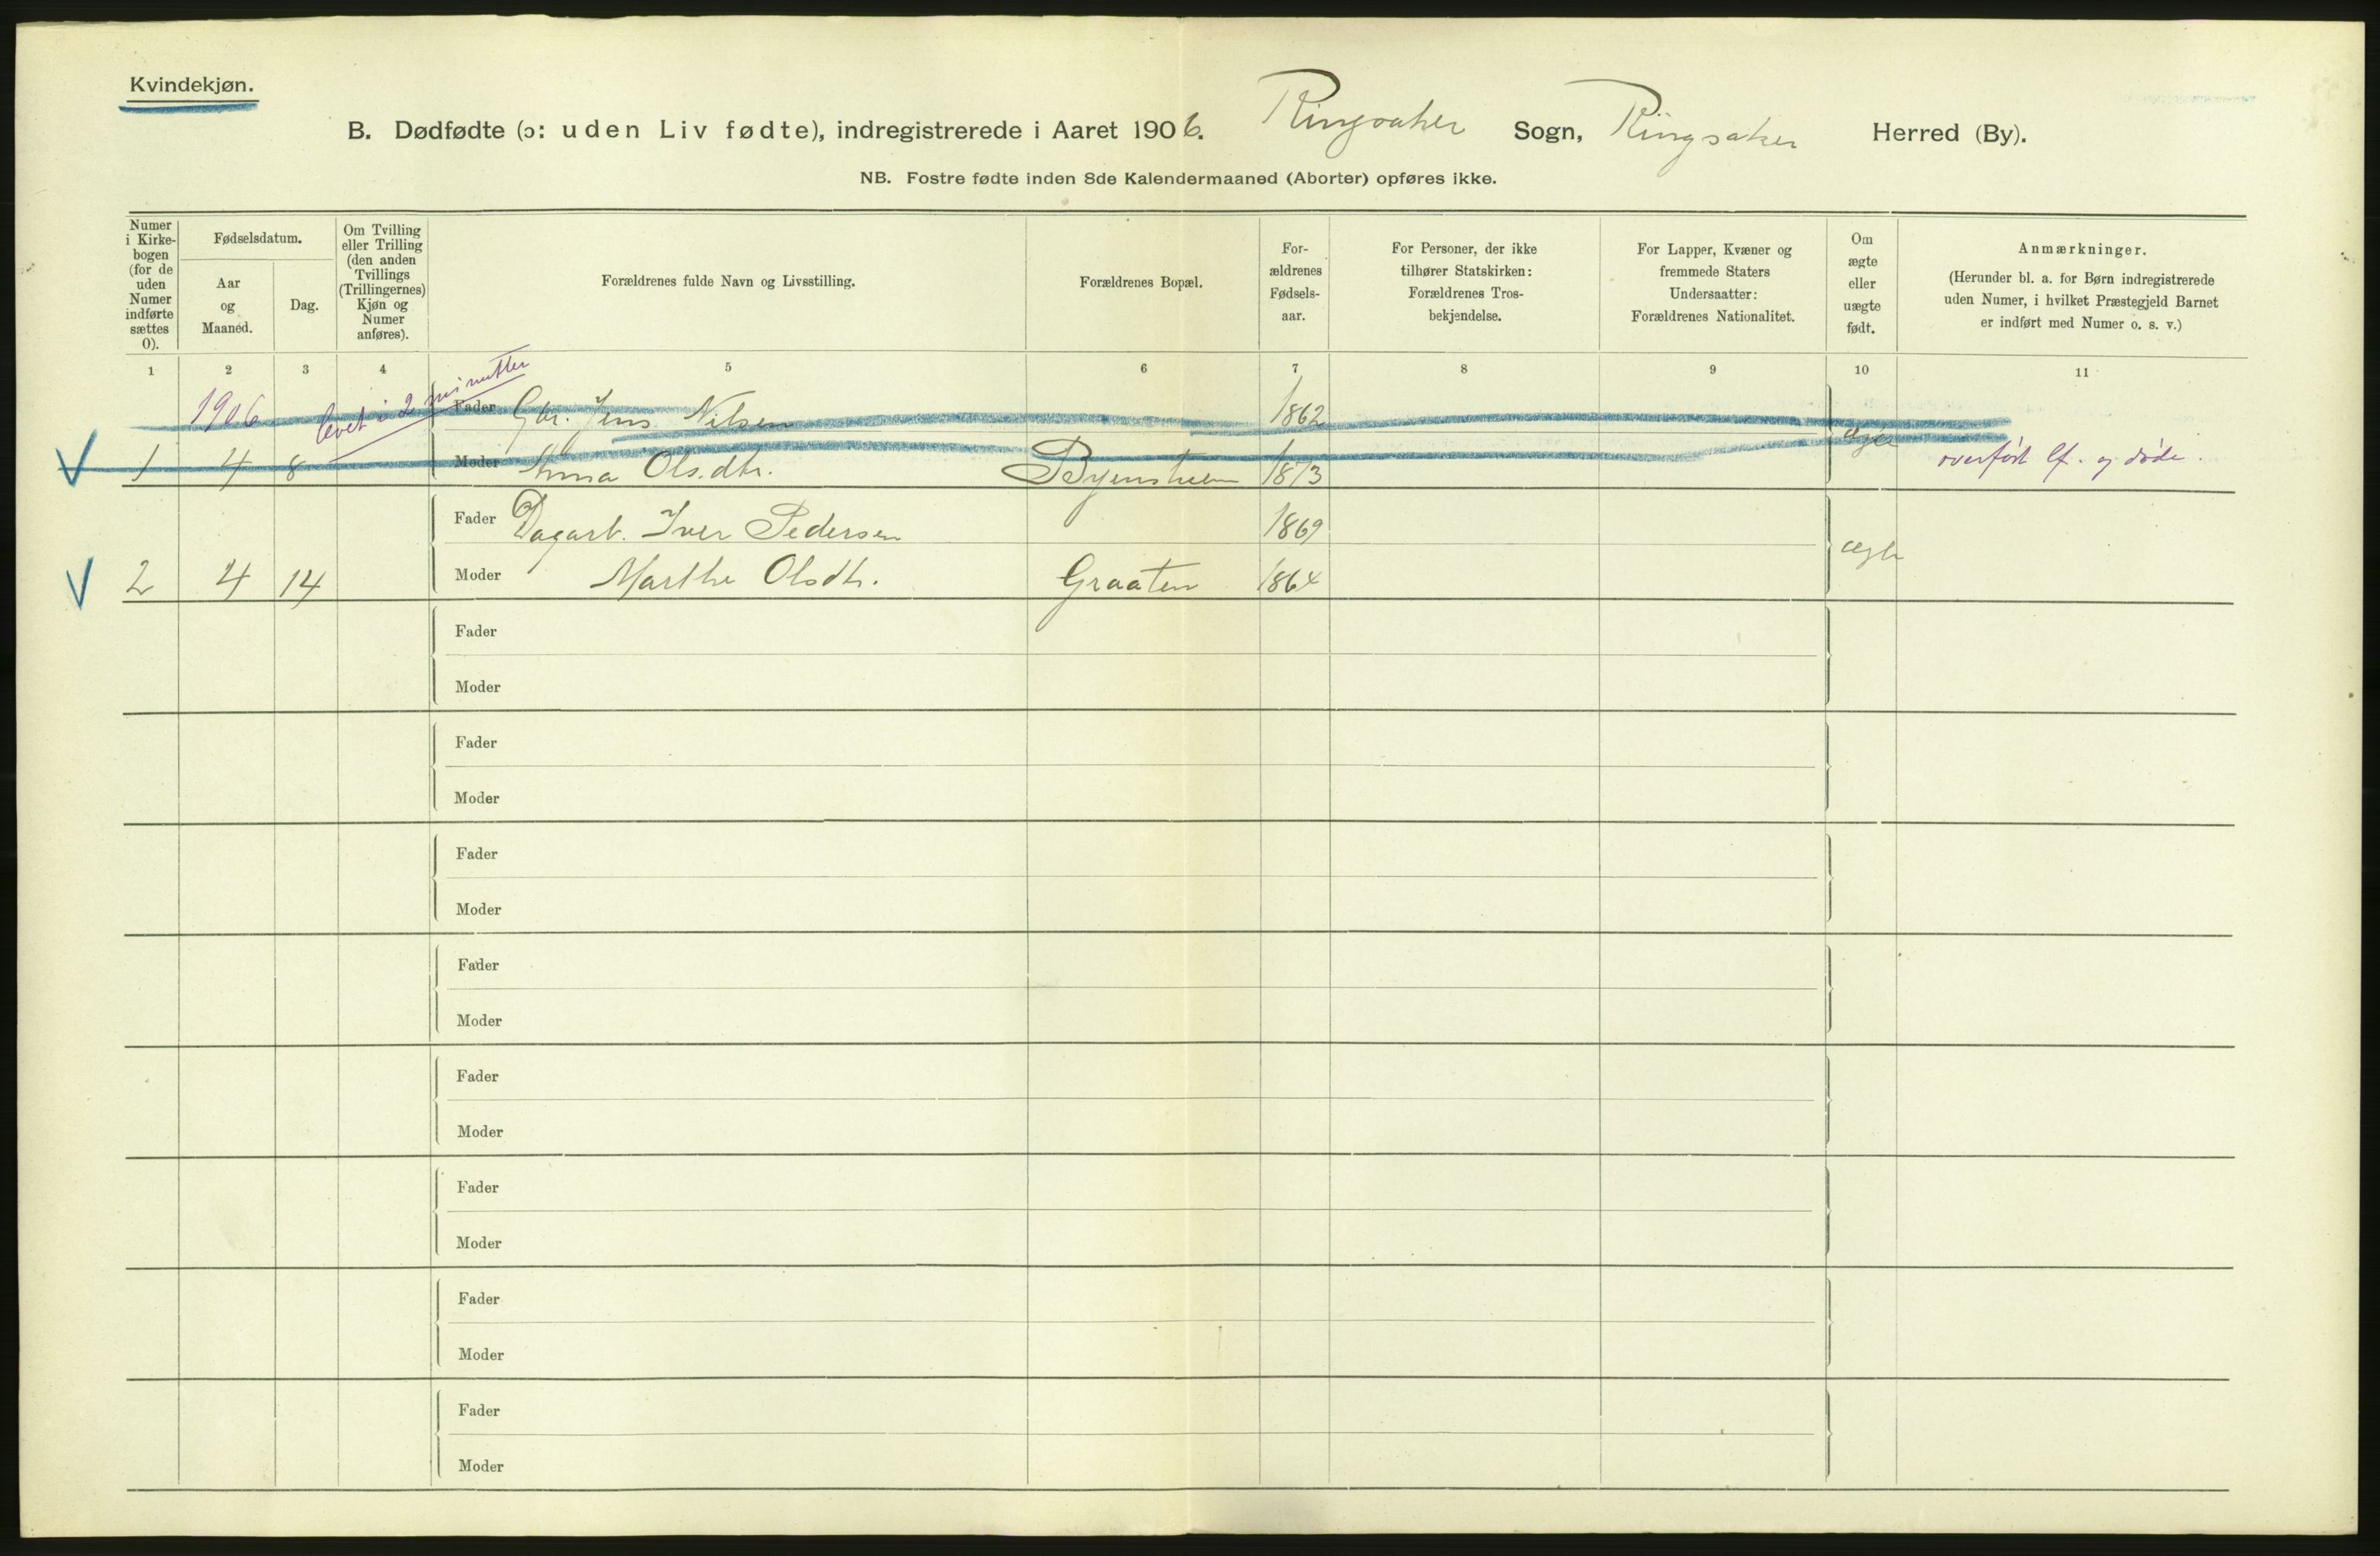 Kvindekjøn.
B. Dødfødte (ɔ: uden Liv fødte), indregistrerede i Aaret 1906. Ringsaker Sogn, Ringsaker Herred (By).
NB. Fostre fødte inden 8de Kalendermaaned (Aborter) opføres ikke.
Numer i Kirke- bogen (for de uden Numer indførte sættes 0).
Fødselsdatum.
Aar og Maaned.
Dag.
Om Tvilling eller Trilling (den anden Tvillings (Trillingernes) Kjøn og Numer anføres).
Forældrenes fulde Navn og Livsstilling.
Forældrenes Bopæl.
For- ældrenes Fødsels- aar.
For Personer, der ikke tilhører Statskirken: Forældrenes Tros- bekjendelse.
For Lapper, Kvæner og fremmede Staters Undersaatter: Forældrenes Nationalitet.
Om ægte eller uægte født.
Anmærkninger.
(Herunder bl. a. for Børn indregistrerede uden Numer, i hvilket Præstegjeld Barnet er indført med Numer o. s. v.)
1 2 3 4 5 6 7 8 9 10 11
1906 levet i 2 minutter Fader Gbr. Jens Nilsen 1862 ægte
1 4 8 Moder Anna Olsdtr. 1873 overført lf. og døde.
Fader Dagarb. Iver Pedersen 1869 ægte
2 4 14 Moder Marthe Olsdtr. Graaten 1864
Fader
Moder
Fader
Moder
Fader
Moder
Fader
Moder
Fader
Moder
Fader
Moder
Fader
Moder
Fader
Moder